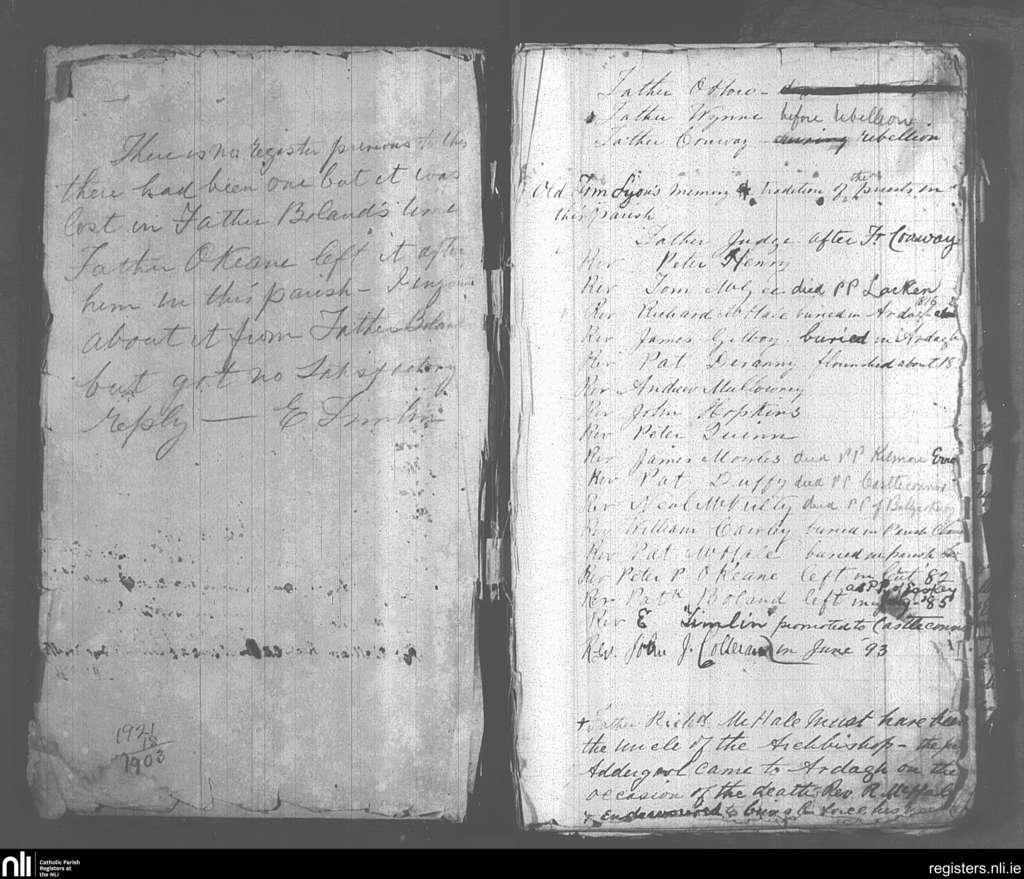 There is no register previous to this
there had been one but it was
lost in Father Boland's time
Father O'Keane left it after
him in this parish – I enquired
about it from Father Boland
but got no satisfactory
reply — E Timlin
1921
18
1903
Father O'Flow –
Father Wynne before rebellion
Father Conway – during rebellion
Old Tim Lyons memory & tradition of the priests in
this parish
Father Judge after Fr Conway
Rev Peter Henry
Rev Tom McGee died PP Lacken
Rev Richard McHale buried in Ardagh
Rev James Gilboy buried in Ardagh
Rev Pat flourished about 18
Rev Andrew
Rev John Hopkins
Rev Peter Quinn
Rev James died PP Kilmore Erris
Rev Pat Duffy died PP Castleconnor
Rev died PP of
Rev William Cawley buried in Parish
Rev Pat McHale buried in parish
Rev Peter P O'Keane left in 82
as PP of Easkey
Rev Patk Boland left in '85
Rev E Timlin promoted to Castleconnor
Rev. John J. Colleran in June '93
+ Father Richd McHale must have been
the uncle of the Archbishop – the
Addergool came to Ardagh on the
occasion of the death Rev R McHale
& endeavoured to bring
nli
Catholic Parish
Registers at
the NLI
registers.nli.ie